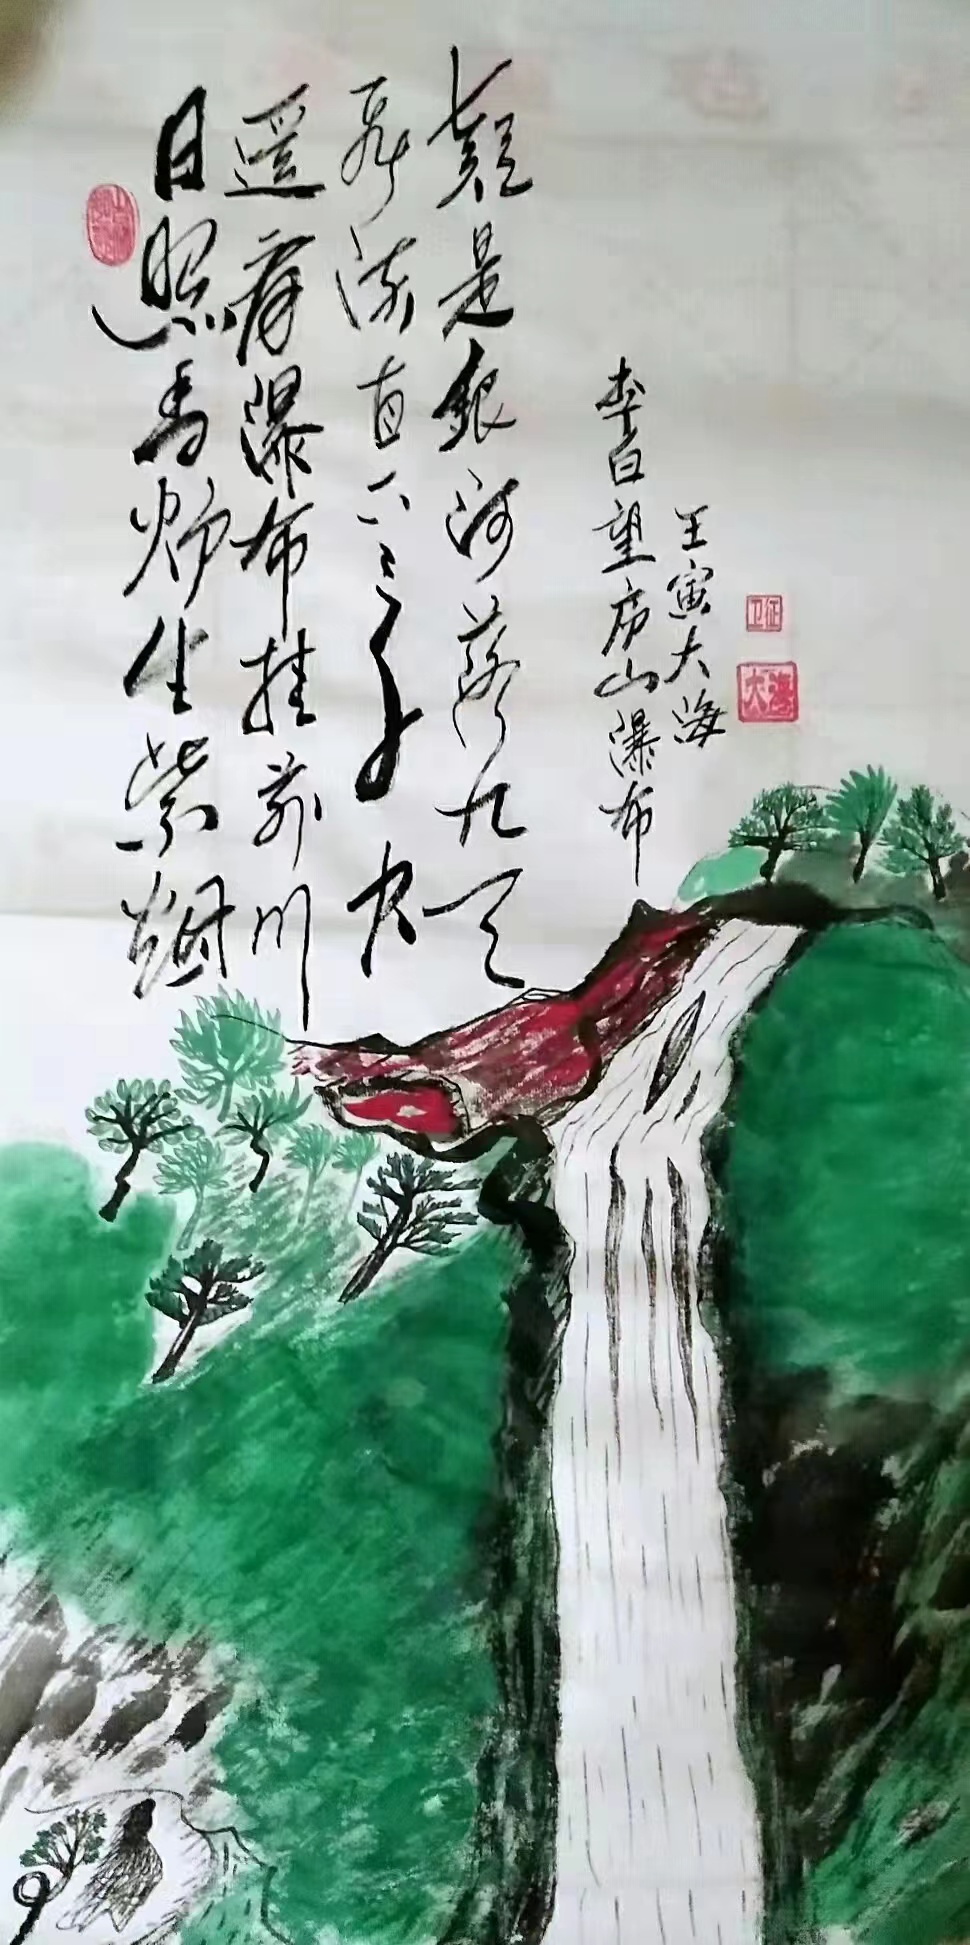 日照香炉生紫烟
遥看瀑布挂前川
飞流直下三千尺
疑是銀河落九天
李白望庐山瀑布
壬寅大海
卫征
大海